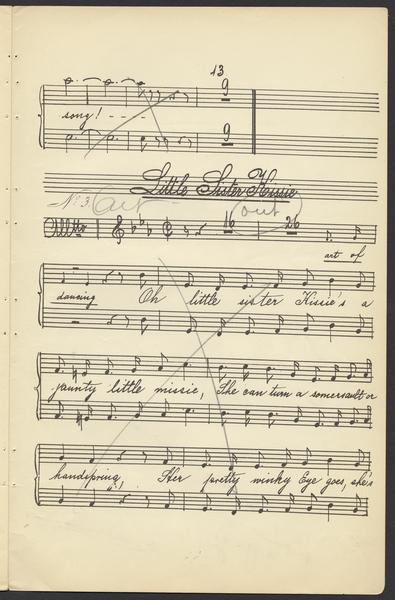 13
9
song! - - -
9
Little Sister Kissie
No. 3 (cut out)
Alltto 16 26
art of
dancing Oh little sister Kisie's a
jaunty little missie, She can turn a somersault or
handspring, Her pretty winky Eye goes, she's